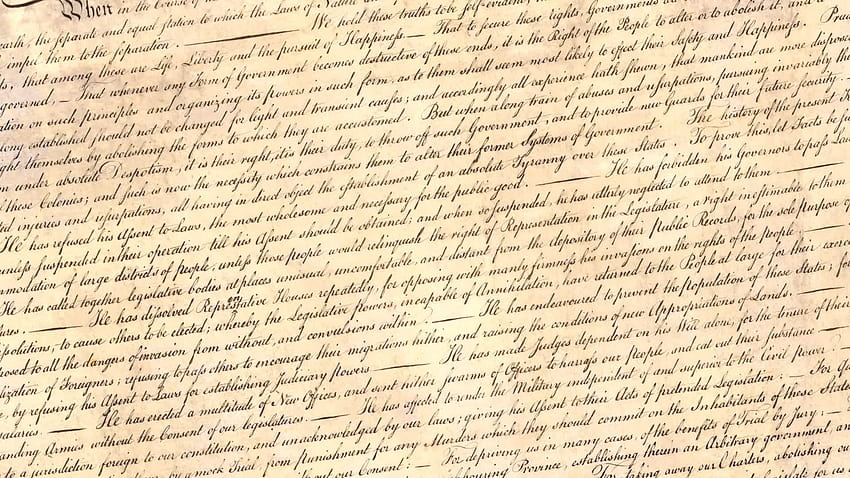 When in the Course of
earth, the separate and equal station to which the Laws of Nature
impel them to the separation. — We hold these truths to be self-evident,
s, that among these are Life, Liberty and the pursuit of Happiness.— That to secure these rights, Governments
governed, — That whenever any Form of Government becomes destructive of these ends, it is the Right of the People to alter or to abolish it, and
ation on such principles and organizing its powers in such form, as to them shall seem most likely to effect their Safety and Happiness. Pru
long established should not be changed for light and transient causes; and accordingly all experience hath shewn, that mankind are more disposed
ght themselves by abolishing the forms to which they are accustomed. But when a long train of abuses and usurpations, pursuing invariably the
m under absolute Despotism, it is their right, it is their duty, to throw off such Government, and to provide new Guards for their future security.—
f these Colonies; and such is now the necessity which constrains them to alter their former Systems of Government. The history of the present K
ed injuries and usurpations, all having in direct object the establishment of an absolute Tyranny over these States. To prove this, let Facts be su
He has refused his Assent to Laws, the most wholesome and necessary for the public good. — He has forbidden his Governors to pass Law
unless suspended in their operation till his Assent should be obtained; and when so suspended, he has utterly neglected to attend to them. —
modation of large districts of people, unless those people would relinquish the right of Representation in the Legislature, a right inestimable to them
He has called together legislative bodies at places unusual, uncomfortable, and distant from the depository of their Public Records, for the sole purpose of
ures. — He has dissolved Representative Houses repeatedly, for opposing with manly firmness his invasions on the rights of the people. —
solutions, to cause others to be elected; whereby the Legislative powers, incapable of Annihilation, have returned to the People at large for their exerc
posed to all the dangers of invasion from without, and convulsions within. — He has endeavoured to prevent the population of these States; fo
lization of Foreigners; refusing to pass others to encourage their migrations hither, and raising the conditions of new Appropriations of Lands. —
e, by refusing his Assent to Laws for establishing Judiciary powers — He has made Judges dependent on his Will alone, for the tenure of their
salaries. — He has erected a multitude of New Offices, and sent hither swarms of Officers to harrass our people, and eat out their substance. —
anding Armies without the Consent of our legislatures. — He has affected to render the Military independent of and superior to the Civil power. —
to a jurisdiction foreign to our constitution, and unacknowledged by our laws; giving his Assent to their Acts of pretended Legislation: — For Qu
by a mock Trial, from punishment for any Murders which they should commit on the Inhabitants of these States
out our Consent: — For depriving us in many cases, of the benefits of Trial by Jury: —
bouring Province, establishing therein an Arbitrary government, an
For taking away our Charters, abolishing ou
legislate for us